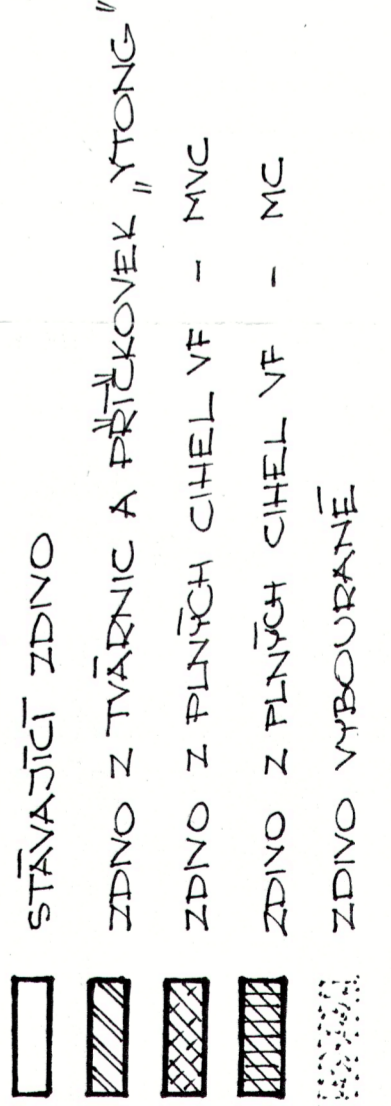 STÁVAJÍCÍ ZDIVO
ZDIVO Z TVÁRNIC A PŘÍČKOVEK „YTONG"
ZDIVO Z PLNÝCH CIHEL VF - MVC
ZDIVO Z PLNÝCH CIHEL VF - MC
ZDIVO VYBOURANÉ